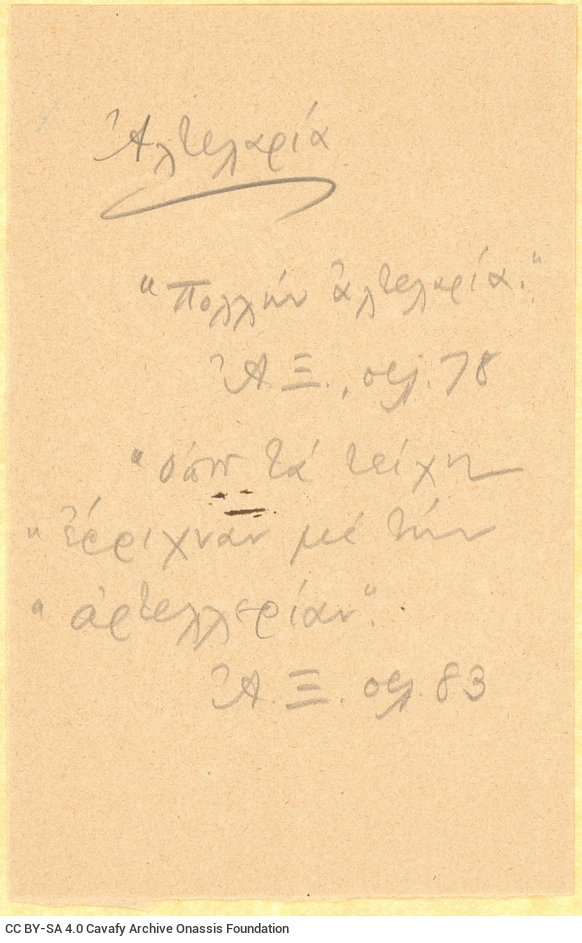 Ἀλτελαρία
"Πολλὴν ἀλτελαρία."
Ἀ. Ξ., σελ. 78
"ὁποῦ τὰ τείχη
"ἔρριχναν μὲ τὴν
"ἀρτελλερίαν".
Ἀ. Ξ. σελ. 83
CC BY-SA 4.0 Cavafy Archive Onassis Foundation